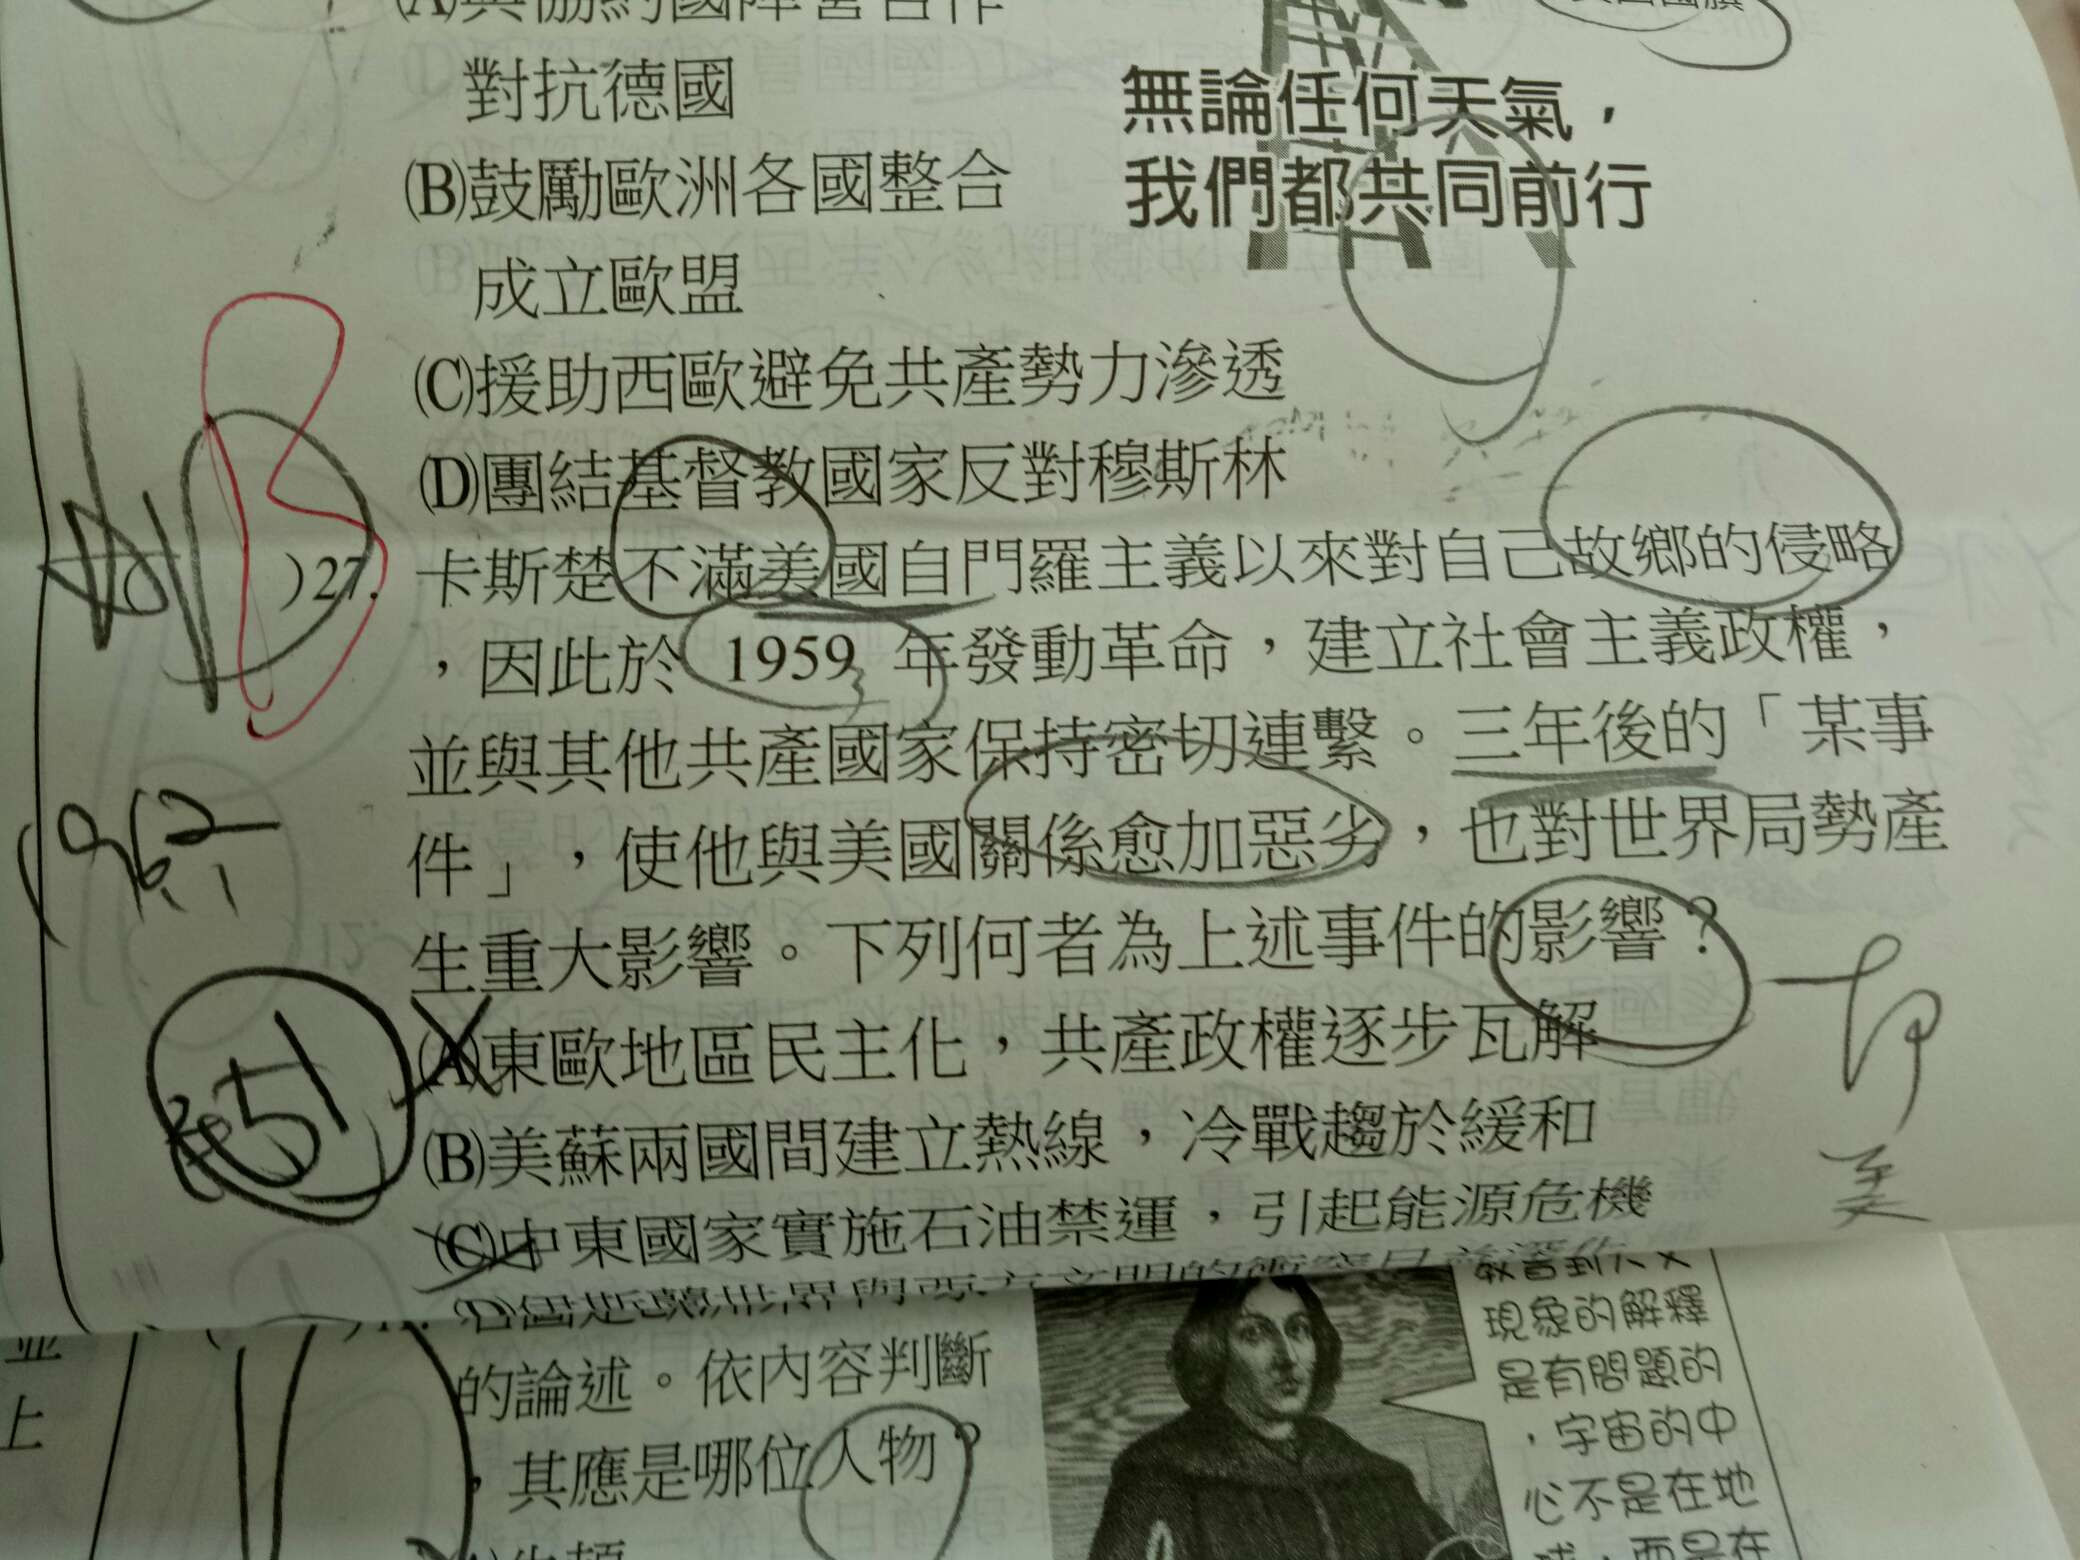 (A)與協約國陣營合作
對抗德國
(B)鼓勵歐洲各國整合
成立歐盟
無論任何天氣，
我們都共同前行
(C)援助西歐避免共產勢力滲透
(D)團結基督教國家反對穆斯林
B
)27. 卡斯楚不滿美國自門羅主義以來對自己故鄉的侵略
，因此於 1959 年發動革命，建立社會主義政權，
並與其他共產國家保持密切連繫。三年後的「某事
件」，使他與美國關係愈加惡劣，也對世界局勢產
生重大影響。下列何者為上述事件的影響？
1962
(A)東歐地區民主化，共產政權逐步瓦解
(B)美蘇兩國間建立熱線，冷戰趨於緩和
(C)中東國家實施石油禁運，引起能源危機
51
美
並
上
的論述。依內容判斷
，其應是哪位人物？
現象的解釋
是有問題的
，宇宙的中
心不是在地
球，而是在